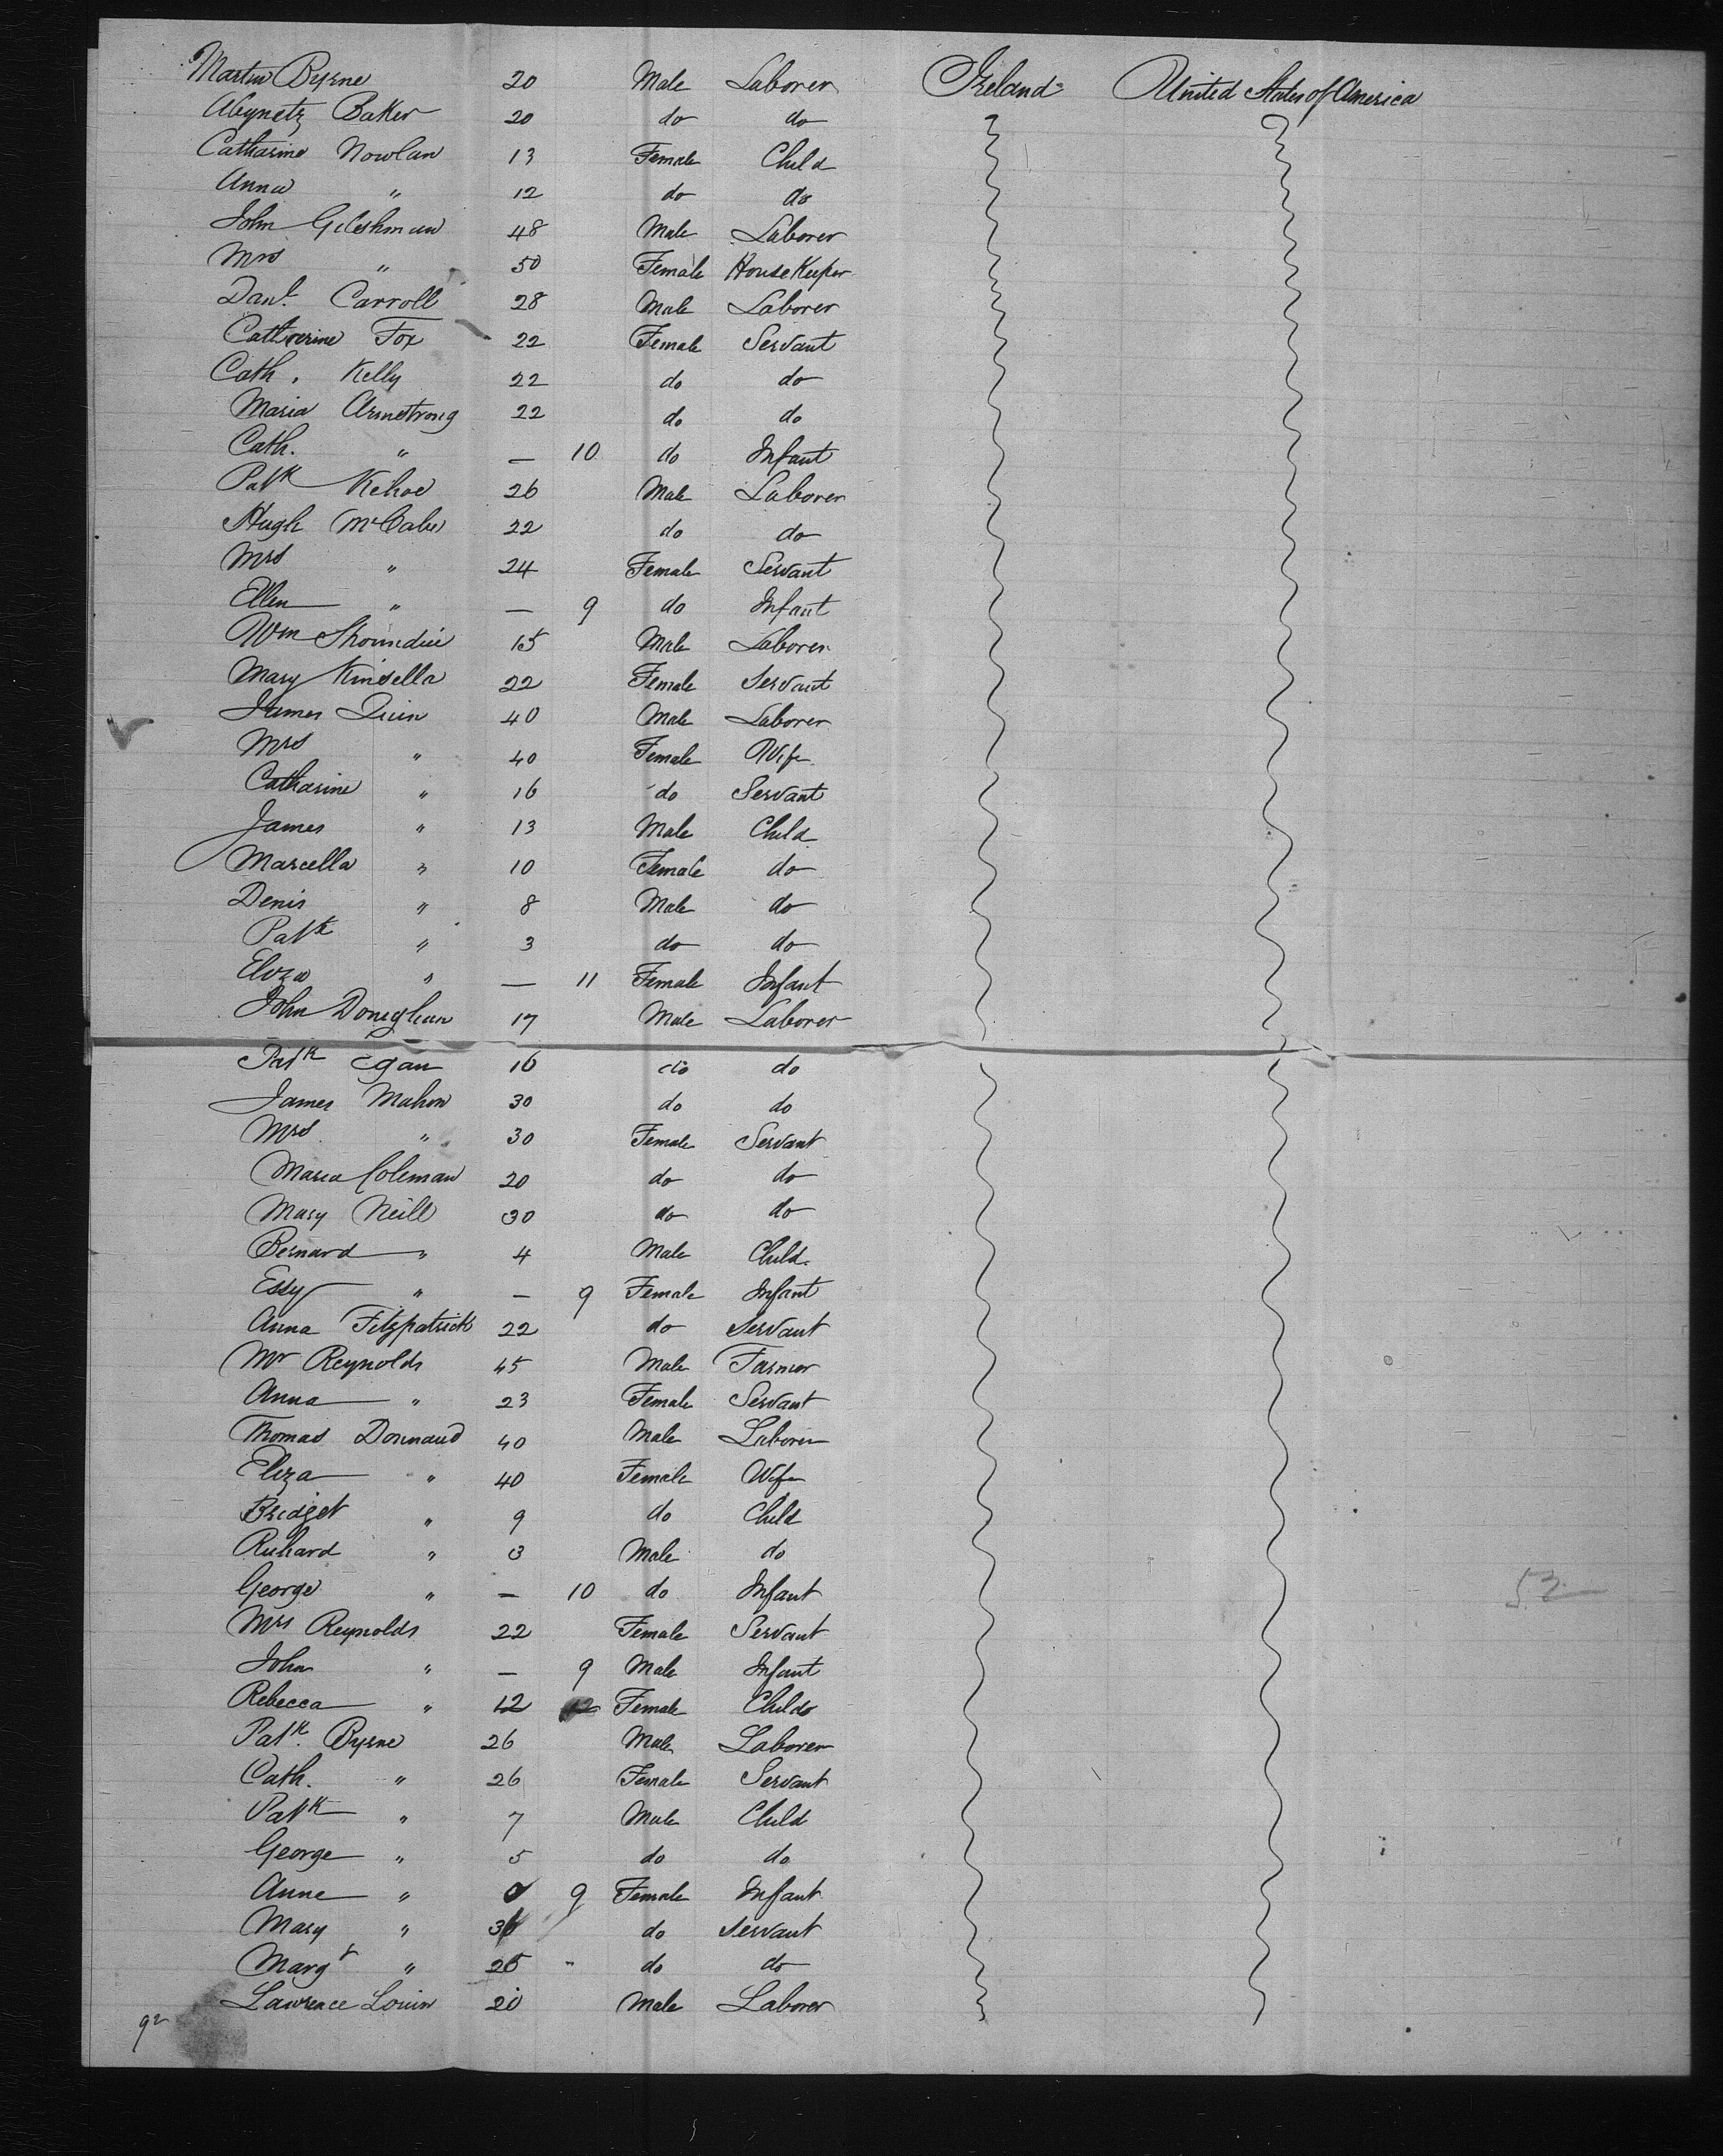 Martin Byrne 20 Male Laborer Ireland United States of America
Baker 20 do do
Catharine Nowlan 13 Female Child
Anna " 12 do do
John Gileshman 48 Male Laborer
Mrs " 50 Female HouseKeeper
Danl. Carroll 28 Male Laborer
Catherine Fox 22 Female Servant
Cath. Kelly 22 do do
Maria Armstrong 22 do do
Cath. " — 10 do Infant
Patk Kehoe 26 Male Laborer
Hugh McCabe 22 do do
Mrs " 24 Female Servant
Ellen " — 9 do Infant
Wm 15 Male Laborer
Mary Kinsella 22 Female Servant
James Quin 40 Male Laborer
Mrs " 40 Female Wife
Catharine " 16 do Servant
James " 13 Male Child
Marcella " 10 Female do
Denis " 8 Male do
Patk " 3 do do
Eliza " — 11 Female Infant
John Doneghan 17 Male Laborer
Patk Egan 16 do do
James Mahon 30 do do
Mrs " 30 Female Servant
Maria Coleman 20 do do
Mary Neill 30 do do
Bernard " 4 Male Child
Essy " — 9 Female Infant
Anna Fitzpatrick 22 do Servant
Mr Reynolds 45 Male Farmer
Anna " 23 Female Servant
Thomas 40 Male Laborer
Eliza " 40 Female Wife
Bridget " 9 do Child
Richard " 3 Male do
George " — 10 do Infant
Mrs Reynolds 22 Female Servant
John " — 9 Male Infant
Rebecca " 12 12 Female Child
Patk. Byrne 26 Male Laborer
Cath. " 26 Female Servant
Patk " 7 Male Child
George " 5 do do
Anne " 9 Female Infant
Mary " 36 do Servant
Margt " 25 " do do
Lawrence 20 Male Laborer
53